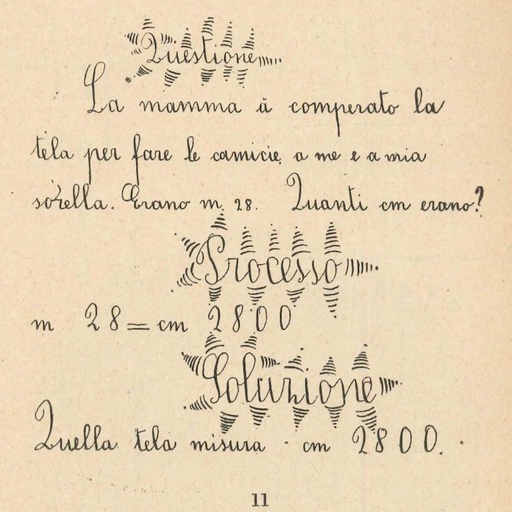 Questione
La mamma à comperato la
tela per fare le camicie a me e a mia
sorella. Erano m. 28. Quanti cm erano?
Processo
m 28 = cm 2800
Soluzione
Quella tela misura cm 2800.
11